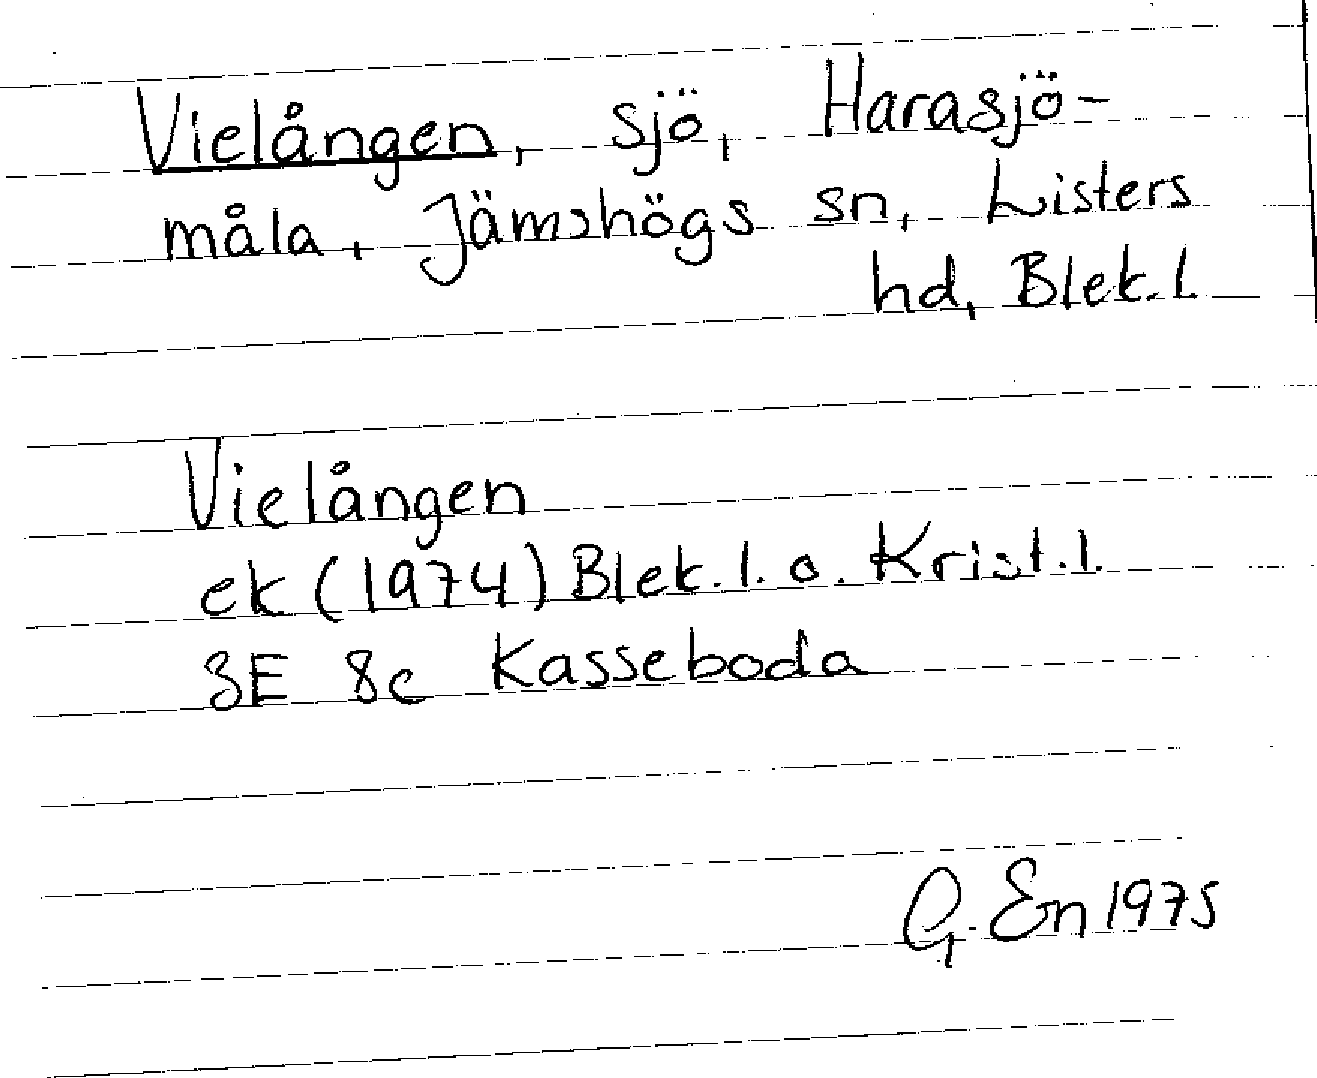 Vielången, sjö, Harasjö-
måla, Jämshögs sn, Listers
hd, Blek.l.
Vielången
ek (1974) Blek.l. o. Krist.l.
3E 8c Kasseboda
G. En 1975